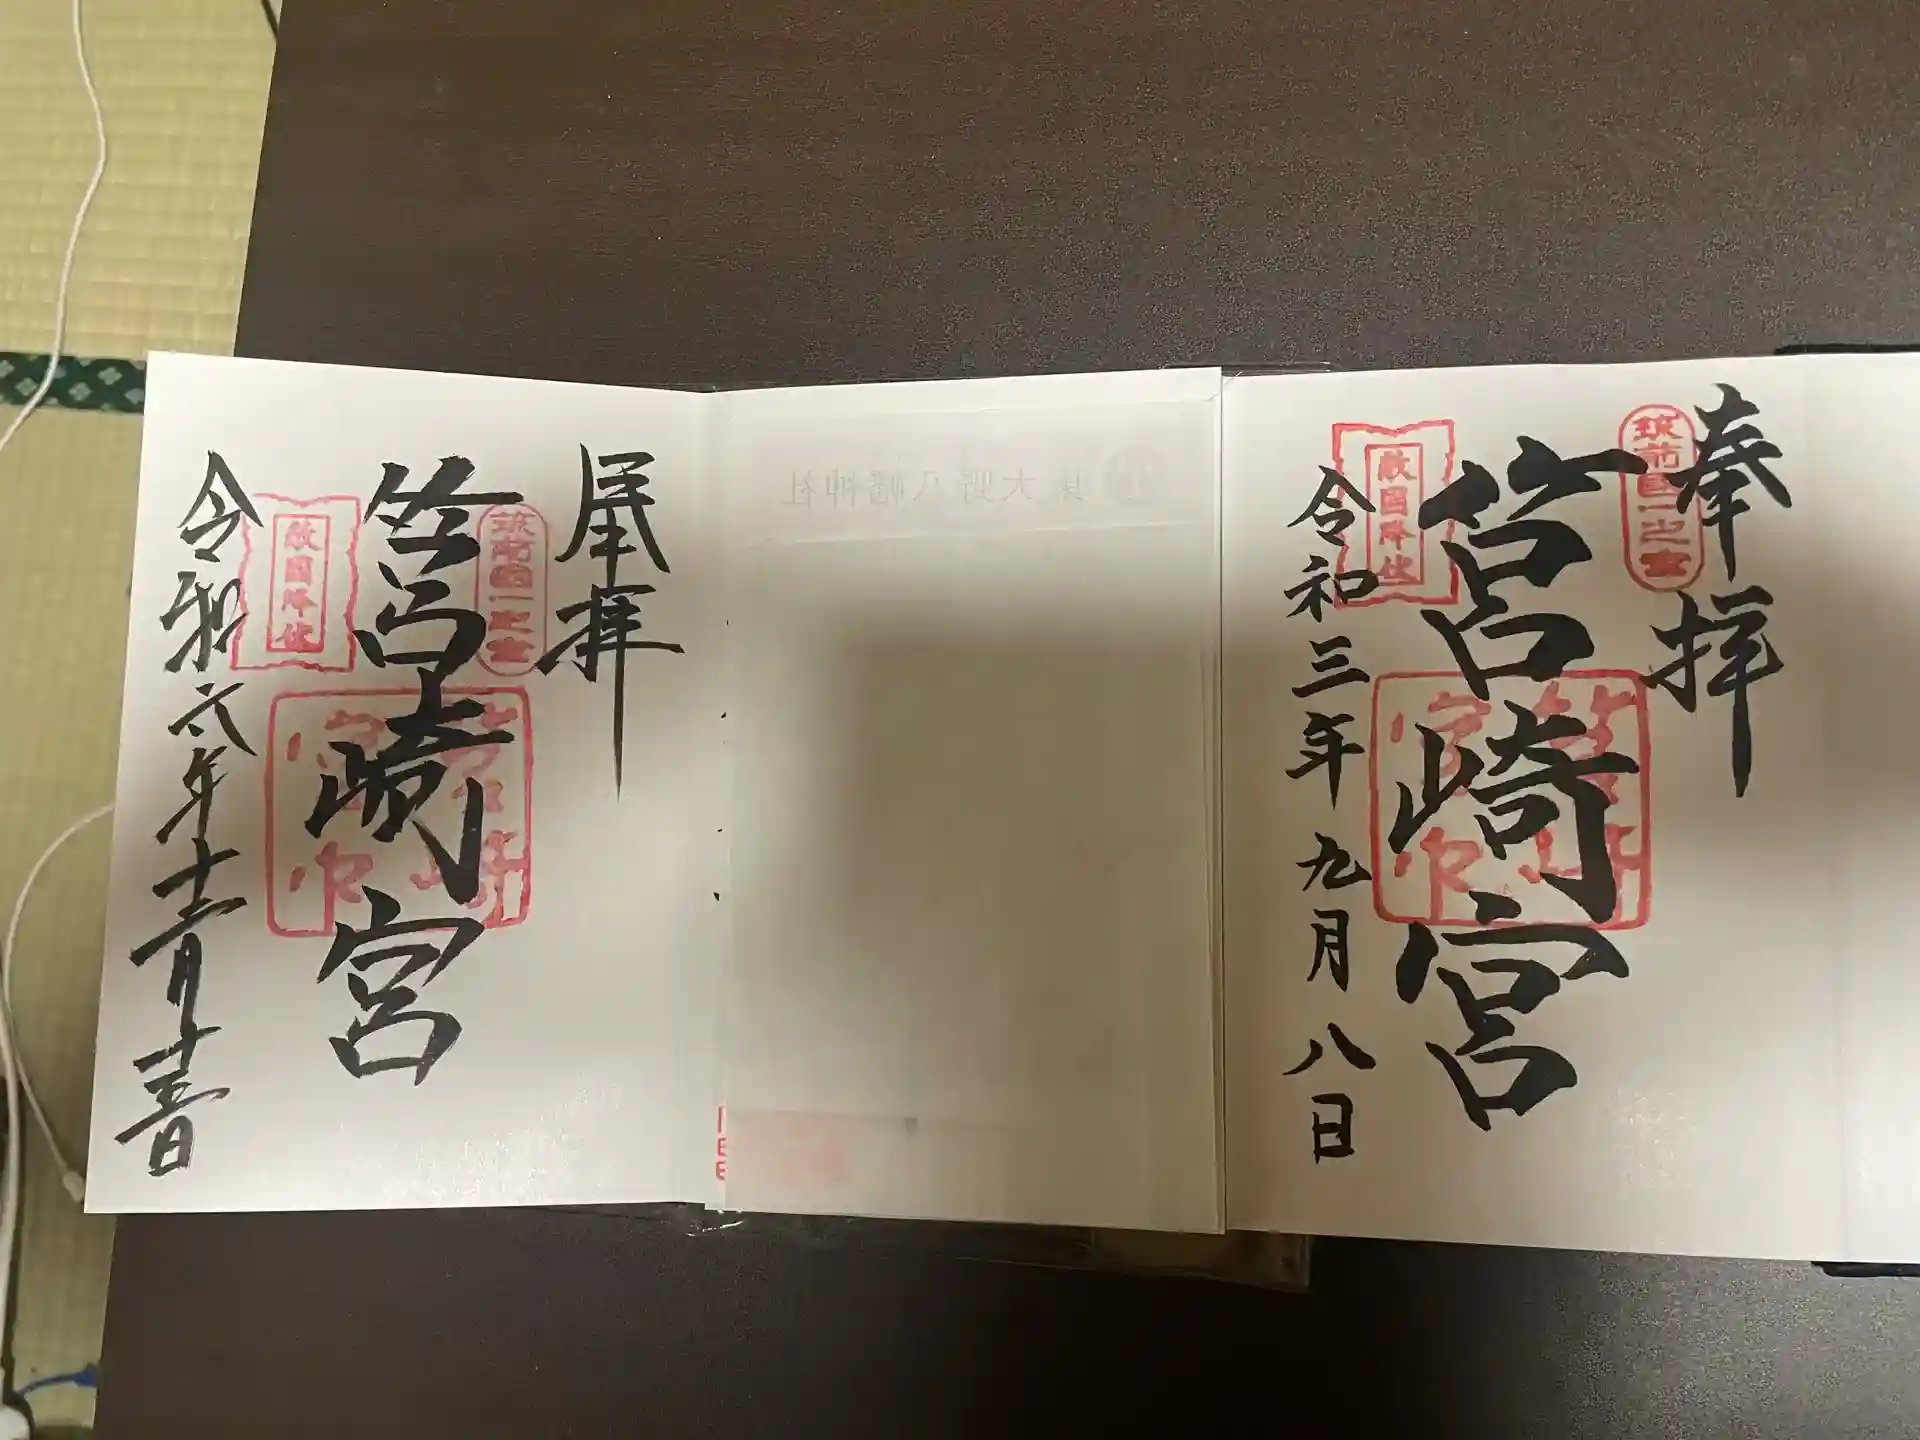 奉拝
筑前國一之宮
筥崎宮
敵国降伏
令和三年九月八日
大野八幡神社
奉拝
筑前國一之宮
筥崎宮
敵国降伏
令和六年十二月十五日